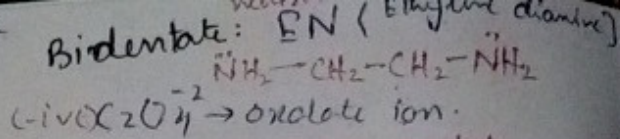 Birdentate: EN (Ethylene diamine)
N̈H₂–CH₂–CH₂–N̈H₂
(-ive)C₂O₄⁻² → oxalate ion.